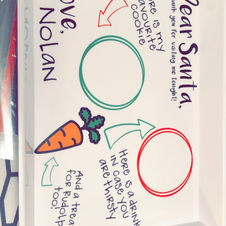 Dear Santa,
Thank you for visiting me tonight!
Here is my
favourite
cookie
Here is a drink
in case you
are thirsty
And a treat
for Rudolph
too!
Love,
Nolan